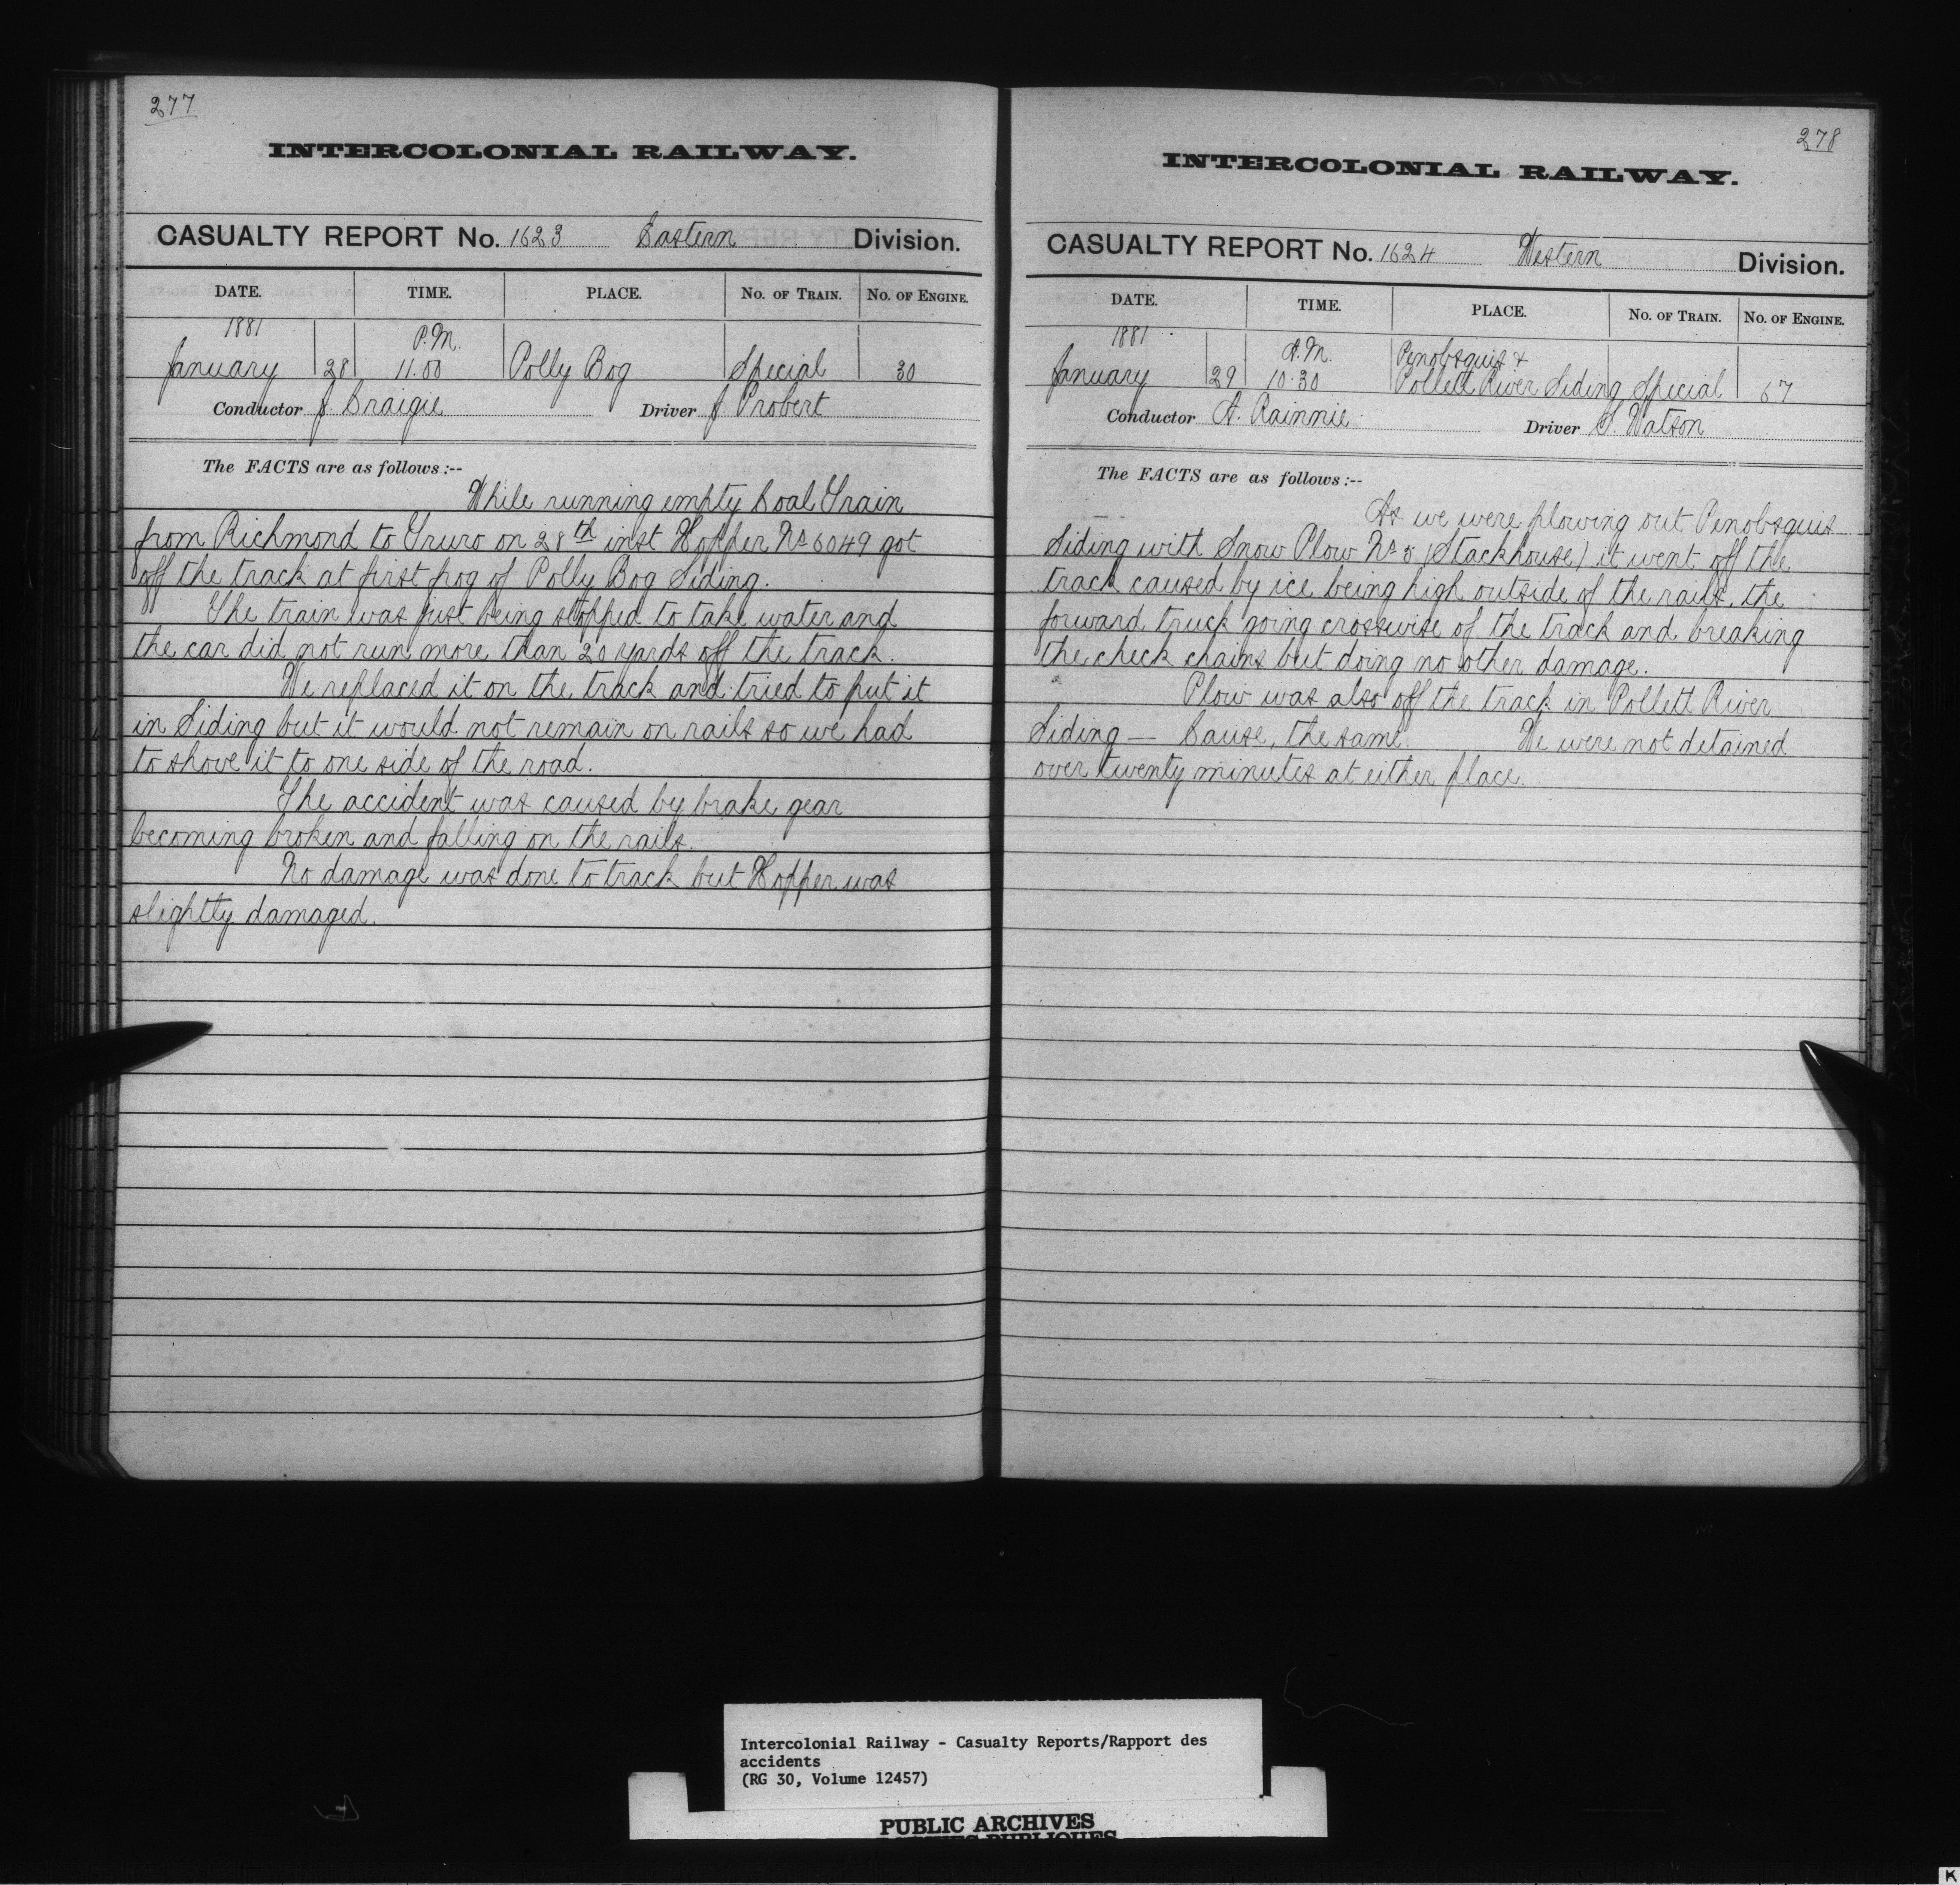 277
INTERCOLONIAL RAILWAY.
CASUALTY REPORT No. 1623 Eastern Division.
DATE. TIME. PLACE. No. of Train. No. of Engine.
1881 P.M.
January 28 11.00 Polly Bog Special 30
Conductor J. Craigie Driver J Probert
The FACTS are as follows:--
While running empty Coal Train
from Richmond to Truro on 28th inst Hopper No 6049 got
off the track at first frog of Polly Bog Siding.
The train was just being stopped to take water and
the car did not run more than 20 yards off the track.
We replaced it on the track and tried to put it
in Siding but it would not remain on rails so we had
to shove it to one side of the road.
The accident was caused by brake gear
becoming broken and falling on the rails.
No damage was done to track but Hopper was
slightly damaged.
278
INTERCOLONIAL RAILWAY.
CASUALTY REPORT No. 1624 Western Division.
DATE. TIME. PLACE. No. of Train. No. of Engine.
1881 A.M. Penobsquis &
January 29 10.30 Pollett River Siding Special 67
Conductor A. Rainnie Driver S. Watson
The FACTS are as follows:--
As we were plowing out Penobsquis
Siding with Snow Plow No 5 (Stackhouse) it went off the
track caused by ice being high outside of the rails, the
forward truck going crosswise of the track and breaking
the check chains but doing no other damage.
Plow was also off the track in Pollett River
Siding — Cause, the same. We were not detained
over twenty minutes at either place.
Intercolonial Railway - Casualty Reports/Rapport des
accidents
(RG 30, Volume 12457)
PUBLIC ARCHIVES
K